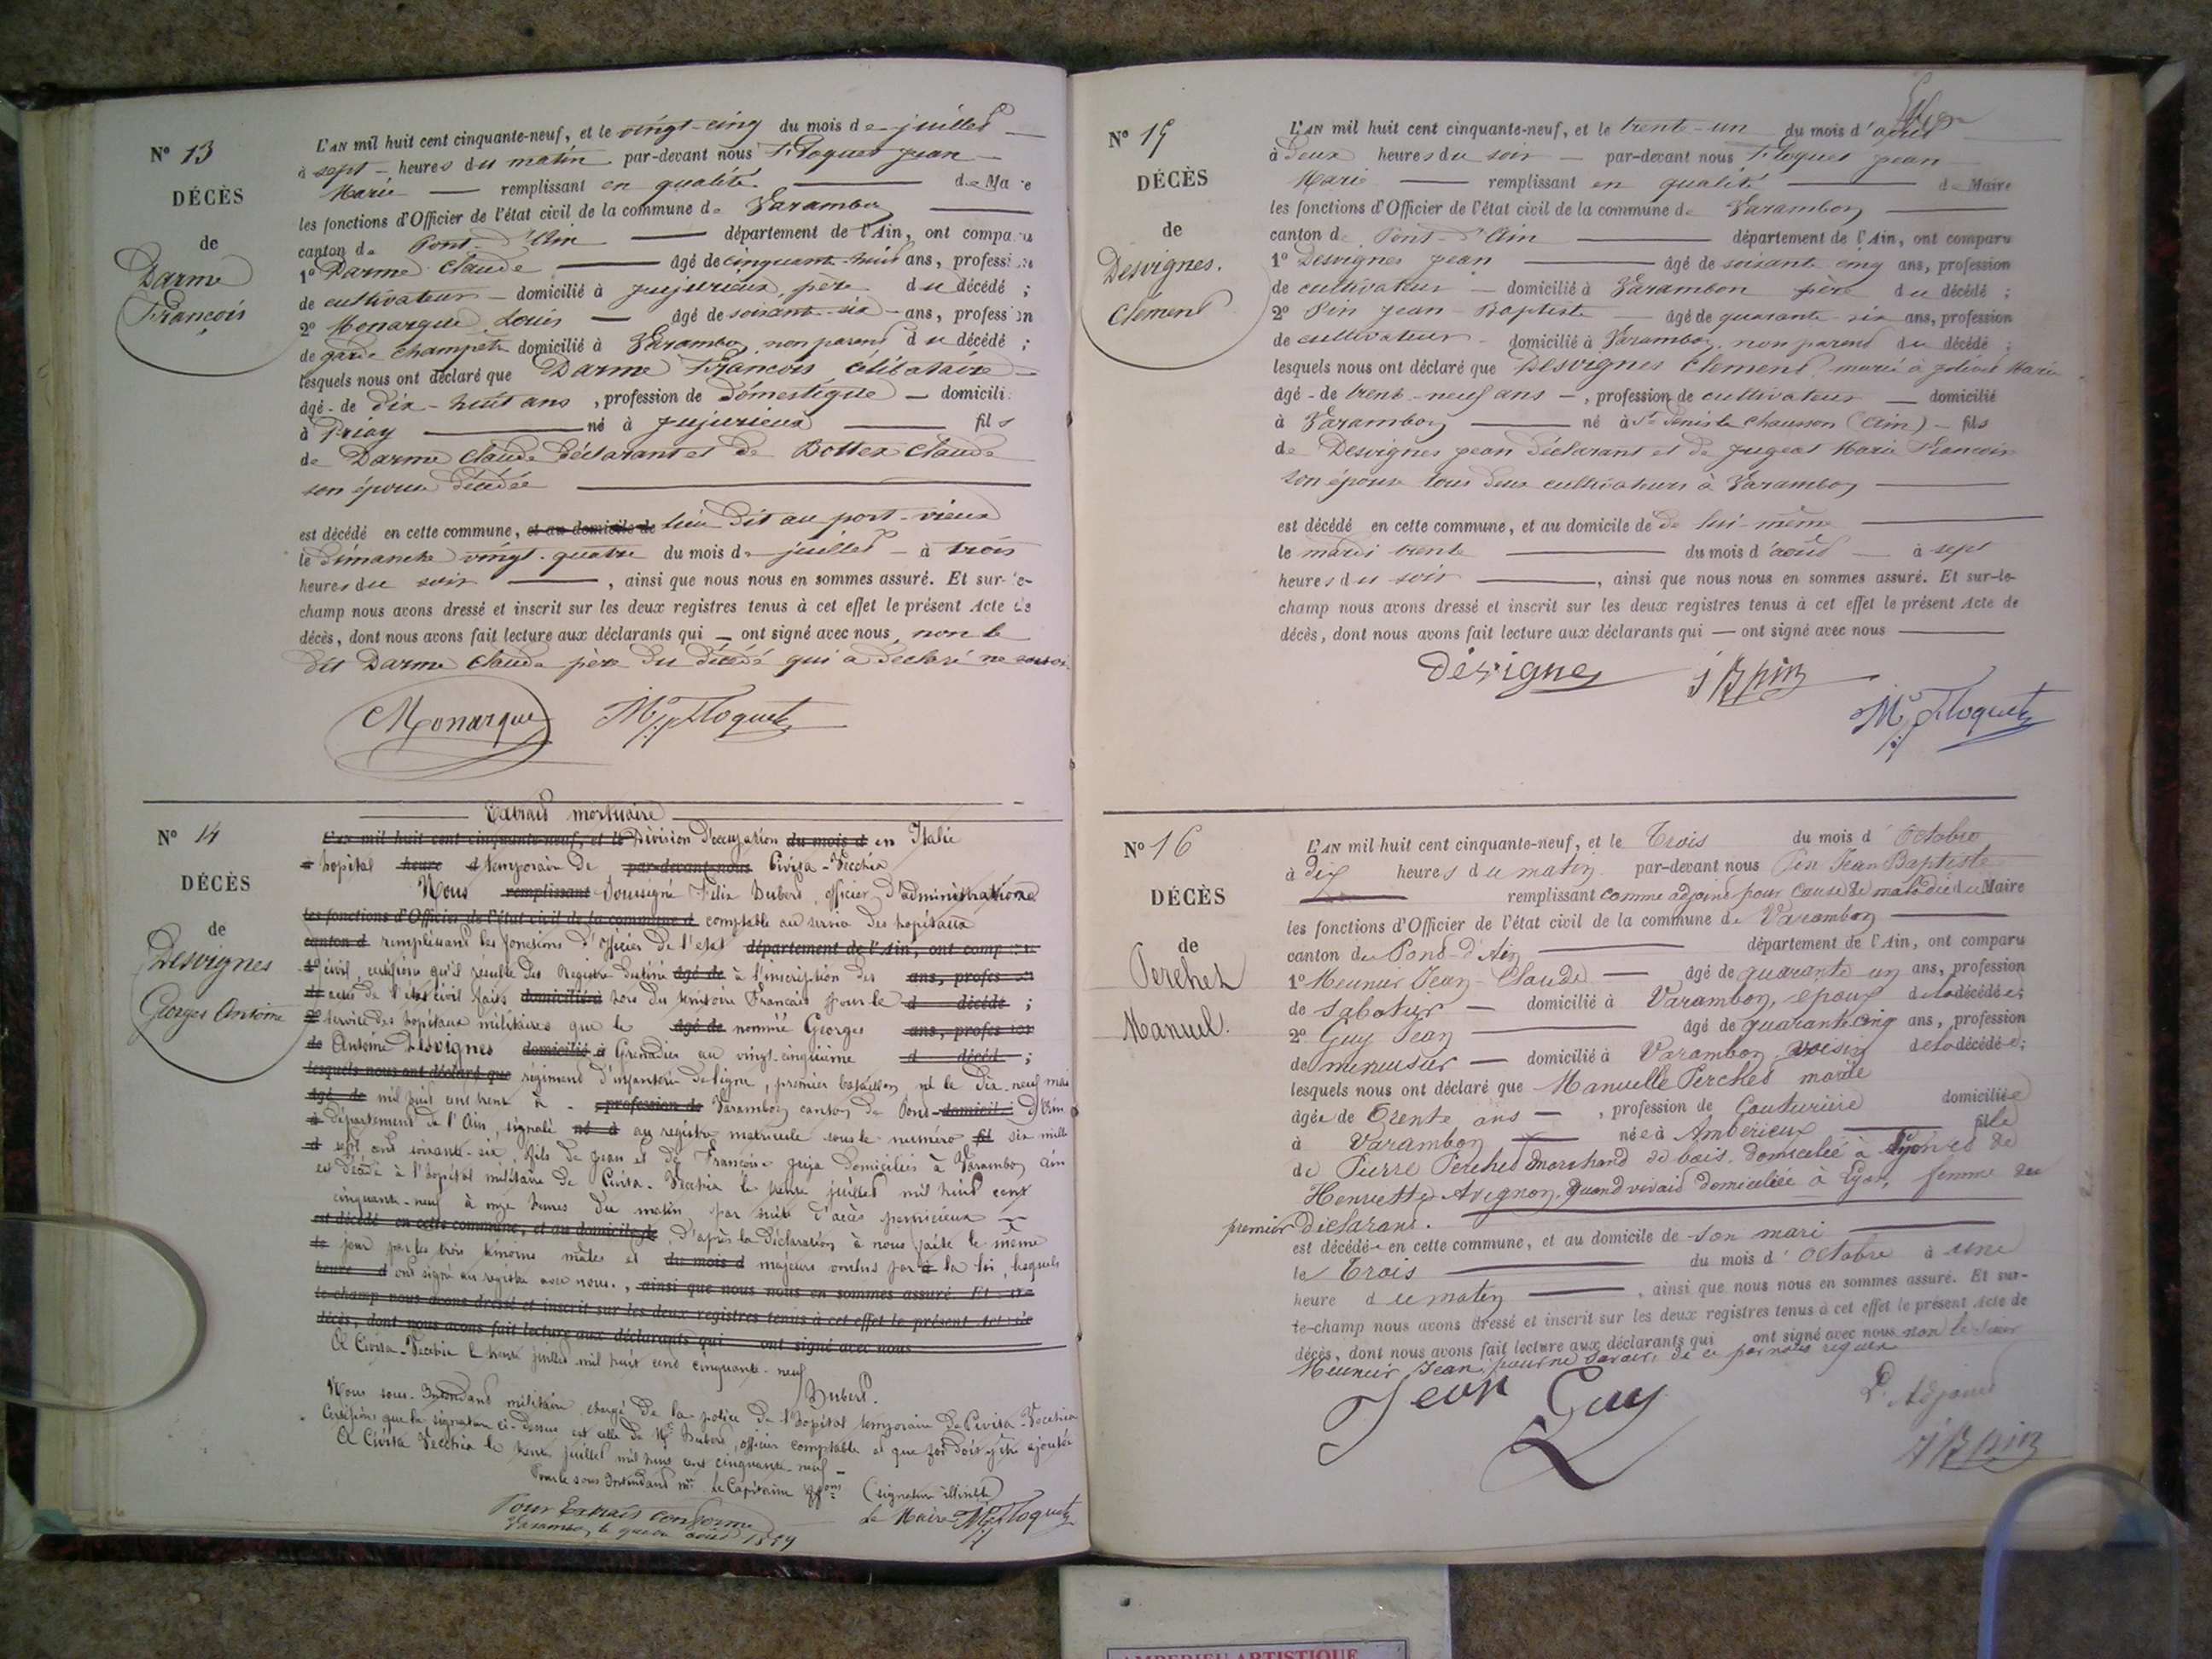 N° 13
DÉCÈS
de
Darme
François
L'AN mil huit cent cinquante-neuf, et le vingt-cinq du mois de juillet
à sept heures du matin par-devant nous Floquet Jean
Marie remplissant en qualité de Maire
les fonctions d'Officier de l'état civil de la commune de Varambon
canton de Pont-d'Ain département de l'Ain, ont comparu
1° Darme Claude âgé de cinquante-huit ans, profession
de cultivateur domicilié à Jujurieux, père du décédé ;
2° Monarque Louis âgé de soixante-six ans, profession
de garde champetre domicilié à Varambon non parent du décédé ;
lesquels nous ont déclaré que Darme François célibataire
âgé de dix-huit ans, profession de domestique domicilié
à Priay né à Jujurieux fils
de Darme Claude déclarant et de Bottex Claude
son épouse décédée
est décédé en cette commune, et au domicile de lieu dit au port-vieux
le dimanche vingt-quatre du mois de juillet à trois
heures du soir, ainsi que nous nous en sommes assuré. Et sur-le-
champ nous avons dressé et inscrit sur les deux registres tenus à cet effet le présent Acte de
décès, dont nous avons fait lecture aux déclarants qui ont signé avec nous, non le
dit Darme Claude père du décédé qui a declaré ne savoir
Monarque Floquet
N° 14
DÉCÈS
de
Desvignes
Georges Antoine
Extrait mortuaire
L'an mil huit cent cinquante-neuf, et le Division d'occupation du mois d en Italie
hopital heure d temporaire de par-devant nous Civita-Vecchia
Nous remplissant soussigné Félix Hubert, officier d'administration
les fonctions d'Officier de l'état civil de la commune d comptable au service des hôpitaux
canton d remplissant les fonctions d'officier de l'etat département de l'Ain, ont comparu
1° civil, certifions qu'il résulte des Registre destiné âgé de à l'inscription des ans, profession
de actes de l'etat civil faits domicilié à hors du territoire Français pour le d décédé ;
2° service des hopitaux militaires que le âgé de nommé Georges ans, profession
de Antoine Desvignes domicilié à Grenadier au vingt-cinquième d décéd ;
lesquels nous ont déclaré que régiment d'infanterie de ligne, premier bataillon, né le dix-neuf mai
âgé de mil huit cent trent à , profession de Varambon canton de Pont-domicilié d'Ain
à Département de l'Ain, signalé né à au registre matricule sous le numéro fil six mille
d sept cent soixante-six, fils de Jean et de Françoise domiciliés à Varambon Ain
est décédé à l'hopital militaire de Civita-Vecchia le trente juillet mil huit cent
cinquante-neuf à onze heures du matin par suite d'accès pernicieux
est décédé en cette commune, et au domicile de D'après la déclaration à nous faite le même
le jour par les trois témoins mâles et du mois d majeurs voulus par à la loi, lesquels
heure d ont signé au registre avec nous, ainsi que nous nous en sommes assuré. Et sur
le-champ nous avons dressé et inscrit sur les deux registres tenus à cet effet le présent Acte de
décès, dont nous avons fait lecture aux déclarants qui ont signé avec nous
A Civita-Vecchia le trente juillet mil huit cent cinquante-neuf
Hubert.
Nous sous-Intendant militaire chargé de la police de l'hopital temporaire de Civita-Vecchia
Certifions que la signature ci-dessus est celle de Mr Hubert, officier comptable et que foi doit y être ajoutée
A Civita Vecchia le trente juillet mil huit cent cinquante-neuf
Pour le sous Intendant mre Le Capitaine (signature illisible)
Pour Extrait conforme Le Maire Floquet
Varambon le août 1859
N° 15
DÉCÈS
de
Desvignes.
Clément
L'AN mil huit cent cinquante-neuf, et le trente-un du mois d'août
à deux heures du soir par-devant nous Floquet Jean
Marie remplissant en qualité de Maire
les fonctions d'Officier de l'état civil de la commune de Varambon
canton de Pont-d'Ain département de l'Ain, ont comparu
1° Desvignes Jean âgé de soixante cinq ans, profession
de cultivateur domicilié à Varambon père du décédé ;
2° Pin Jean-Baptiste âgé de quarante-six ans, profession
de cultivateur domicilié à Varambon, non parent du décédé ;
lesquels nous ont déclaré que Desvignes Clement, marié à Marie
âgé de trente-neuf ans, profession de cultivateur domicilié
à Varambon né à St Denis le Chausson (Ain) fils
de Desvignes Jean déclarant et de Jugeat Marie
son épouse tous deux cultivateurs à Varambon
est décédé en cette commune, et au domicile de de lui-même
le mardi trente du mois d'août à sept
heures du soir, ainsi que nous nous en sommes assuré. Et sur-le-
champ nous avons dressé et inscrit sur les deux registres tenus à cet effet le présent Acte de
décès, dont nous avons fait lecture aux déclarants qui ont signé avec nous
désvignes J B pin
Floquet
N° 16
DÉCÈS
de
Perchet
Manuel.
L'AN mil huit cent cinquante-neuf, et le Trois du mois d'Octobre
à dix heures du matin par-devant nous Pin Jean Baptiste
remplissant comme adjoint pour cause de maladie du Maire
les fonctions d'Officier de l'état civil de la commune de Varambon
canton du Pond-d'Ain département de l'Ain, ont comparu
1° Meunier Jean-Claude âgé de quarante un ans, profession
de Sabotier domicilié à Varambon, epoux de la décédée ;
2° Guy Jean âgé de quarante cinq ans, profession
de menuisier domicilié à Varambon voisin de la décédée ;
lesquels nous ont déclaré que Manuelle Perchet mariée
âgée de Trente ans, profession de Couturiere domiciliée
à Varambon née à Amberieux fille
de Pierre Perchet marchand de bois domicilié à Lyon et de
Henriette Avignon, quand vivait domiciliée à Lyon, femme du
premier déclarant.
est décédée en cette commune, et au domicile de son mari
le Trois du mois d'Octobre à une
heure du matin, ainsi que nous nous en sommes assuré. Et sur-
le-champ nous avons dressé et inscrit sur les deux registres tenus à cet effet le présent Acte de
décès, dont nous avons fait lecture aux déclarants qui ont signé avec nous non le sieur
Meunier Jean pour ne savoir, de ce par nous requis
Jean Guy L'Adjoint
J B pin
AMBERIEU ARTISTIQUE